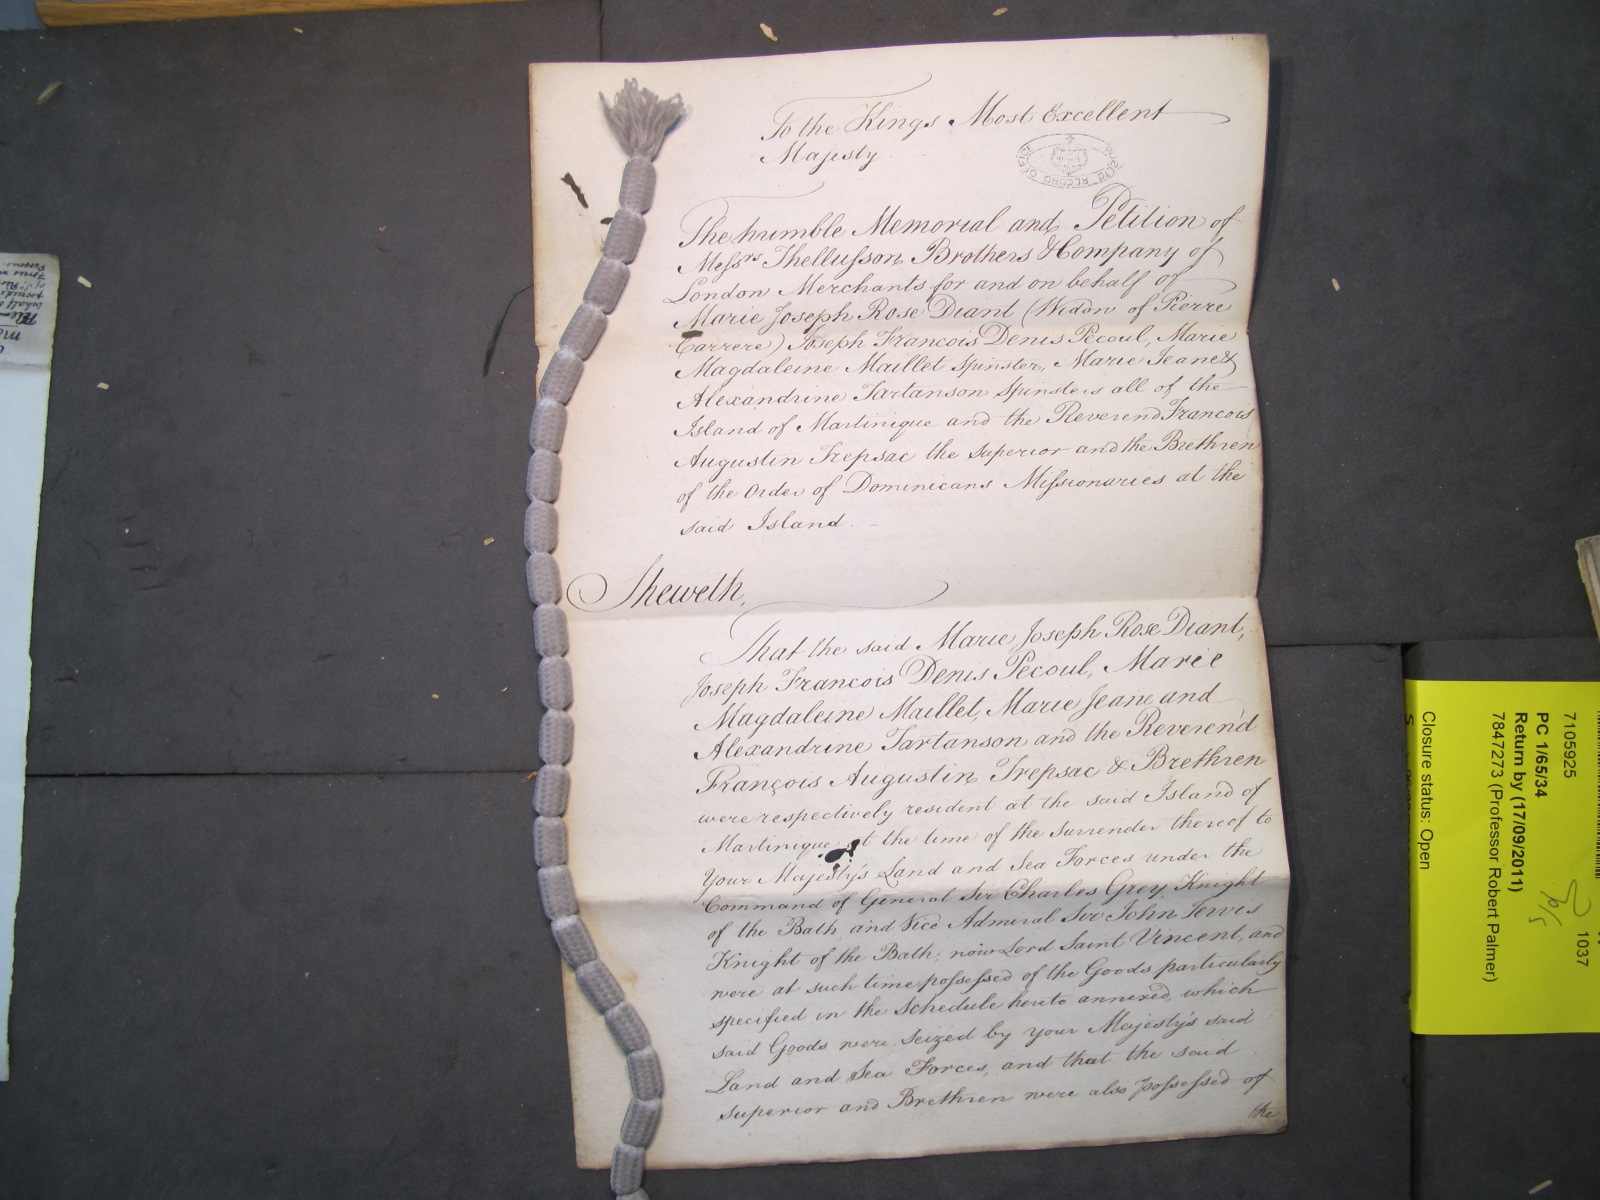 To the Kings Most Excellent
Majesty
PUBLIC RECORD OFFICE
The humble Memorial and Petition of
Messrs Thellusson Brothers & Company of
London Merchants for and on behalf of
Marie Joseph Rose Diant (Widow of Pierre
Carrere) Joseph Francois Denis Pecoul, Marie
Magdaleine Maillet Spinster, Marie Jeane &
Alexandrine Tartanson Spinsters all of the
Island of Martinique and the Reverend Francois
Augustin Trepsac the Superior and the Brethren
of the Order of Dominicans Missionaries at the
said Island
Sheweth,
That the said Marie Joseph Rose Diant,
Joseph Francois Denis Pecoul, Marie
Magdaleine Maillet, Marie Jeane and
Alexandrine Tartanson and the Reverend
François Augustin Trepsac & Brethren
were respectively resident at the said Island of
Martinique at the time of the surrender thereof to
Your Majesty's Land and Sea Forces under the
Command of General Sir Charles Grey Knight
of the Bath, and Vice Admiral Sir John Jervis
Knight of the Bath, now Lord Saint Vincent, and
were at such time possessed of the Goods particularly
specified in the Schedule hereto annexed, which
said Goods were seized by your Majesty's said
Land and Sea Forces, and that the said
Superior and Brethren were also possessed of
the
7105925
1037
PC 1/65/34
Return by (17/09/2011)
7847273 (Professor Robert Palmer)
Closure status: Open